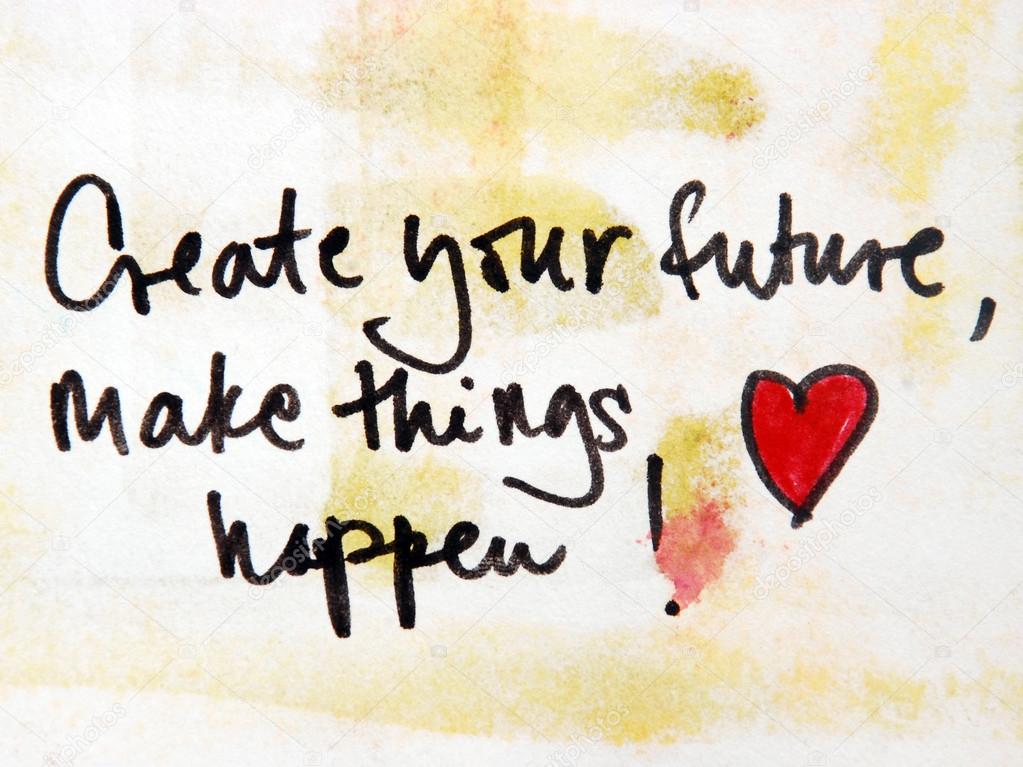 Create your future,
make things
happen!
depositphotos